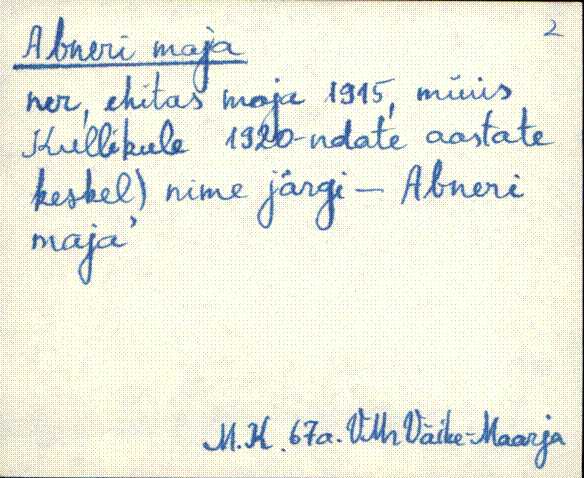 2
Abneri maja
ner, ehitas maja 1915, müüs
Kullikule 1920-ndate aastate
keskel) nime järgi – Abneri
maja'
M.K. 67a. VMr Väike-Maarja